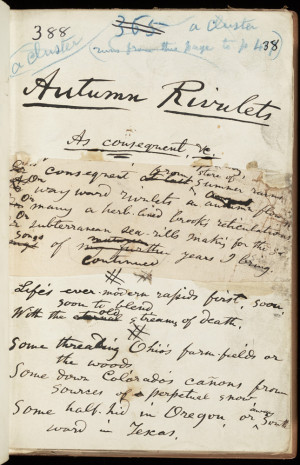 388 365 a cluster
a cluster (runs from this page to p 4 38
Autumn Rivulets
As consequent, &c
As consequent store of summer rains
Or wayward rivulets in autumn flowing
Or many a herb-lined brook's reticulations
Or subterranean sea-rills making for the sea
Songs of continued years I bring.
Life's ever-modern rapids first, soon
soon to blend
With the old streams of death.
Some threading Ohio's farm-fields or
the woods
Some down Colorado's cañons from
sources of perpetual snow,
Some half-hid in Oregon, or away south
ward in Texas,